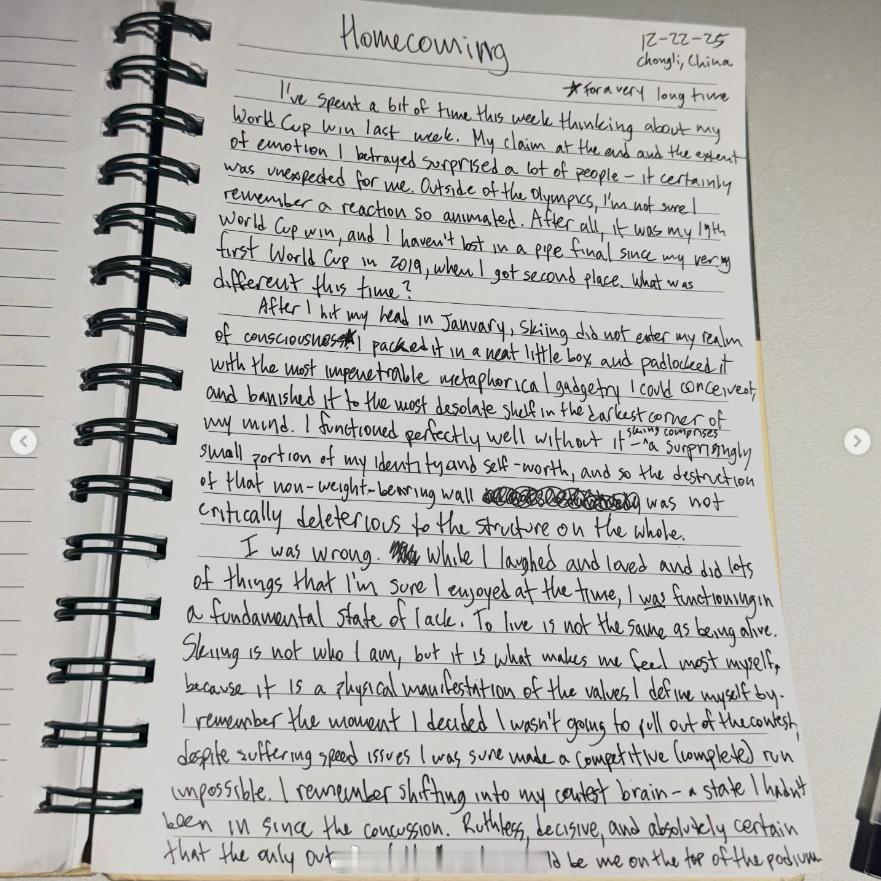 Homecoming
12-22-25
Chongli, China
*For a very long time
I've spent a bit of time this week thinking about my
World Cup win last week. My claim at the end and the extent
of emotion I betrayed surprised a lot of people – it certainly
was unexpected for me. Outside of the Olympics, I'm not sure I
remember a reaction so animated. After all, it was my 19th
World Cup win, and I haven't lost in a pipe final since my very
first World Cup in 2019, when I got second place. What was
different this time?
After I hit my head in January, skiing did not enter my realm
of consciousness* I packed it in a neat little box and padlocked it
with the most impenetrable metaphorical gadgetry I could conceive of,
and banished it to the most desolate shelf in the darkest corner of
my mind. I functioned perfectly well without it – skiing comprises a surprisingly
small portion of my identity and self-worth, and so the destruction
of that non-weight-bearing wall was not
critically deleterious to the structure on the whole.
I was wrong. While I laughed and loved and did lots
of things that I'm sure I enjoyed at the time, I was functioning in
a fundamental state of lack. To live is not the same as being alive.
Skiing is not who I am, but it is what makes me feel most myself,
because it is a physical manifestation of the values I define myself by.
I remember the moment I decided I wasn't going to pull out of the contest,
despite suffering speed issues I was sure made a competitive (complete) run
impossible. I remember shifting into my contest brain – a state I hadn't
been in since the concussion. Ruthless, decisive, and absolutely certain
that the only be me on the top of the podium